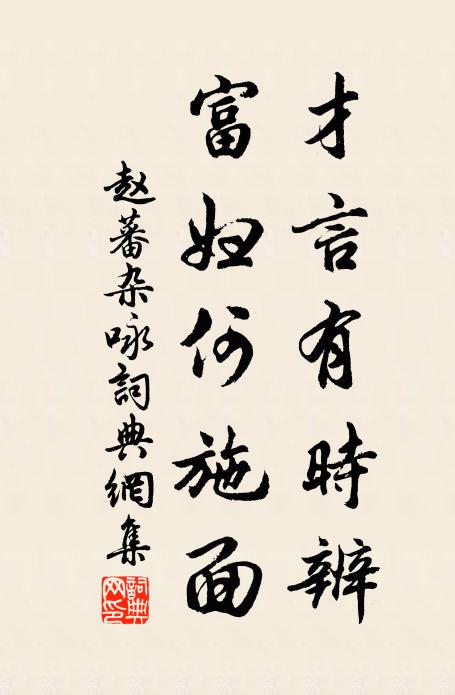 才言有時辨
富妇何施面
赵蕃杂咏詞典網集
詞典网印